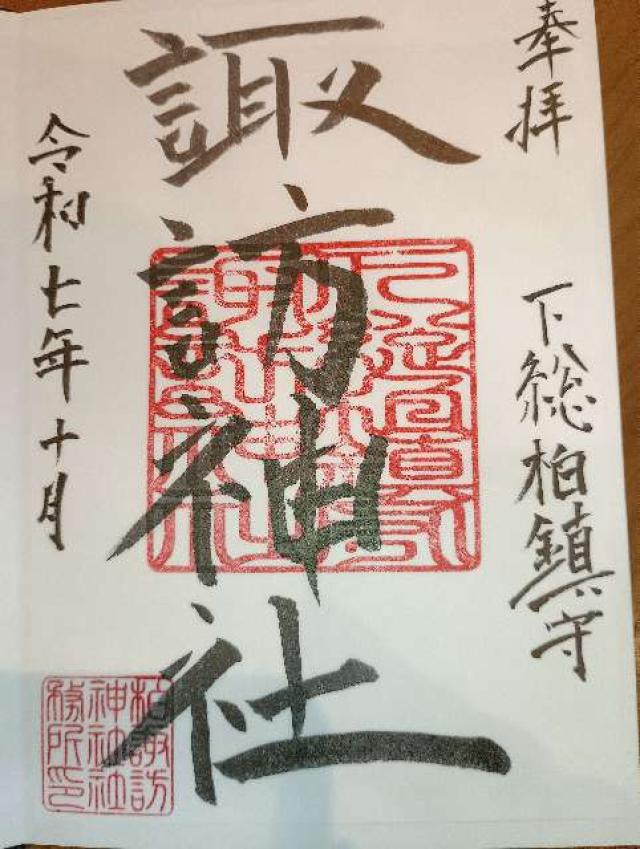 奉拝
下総柏鎮守
諏訪神社
令和七年十月
柏諏訪
神社社
務所印